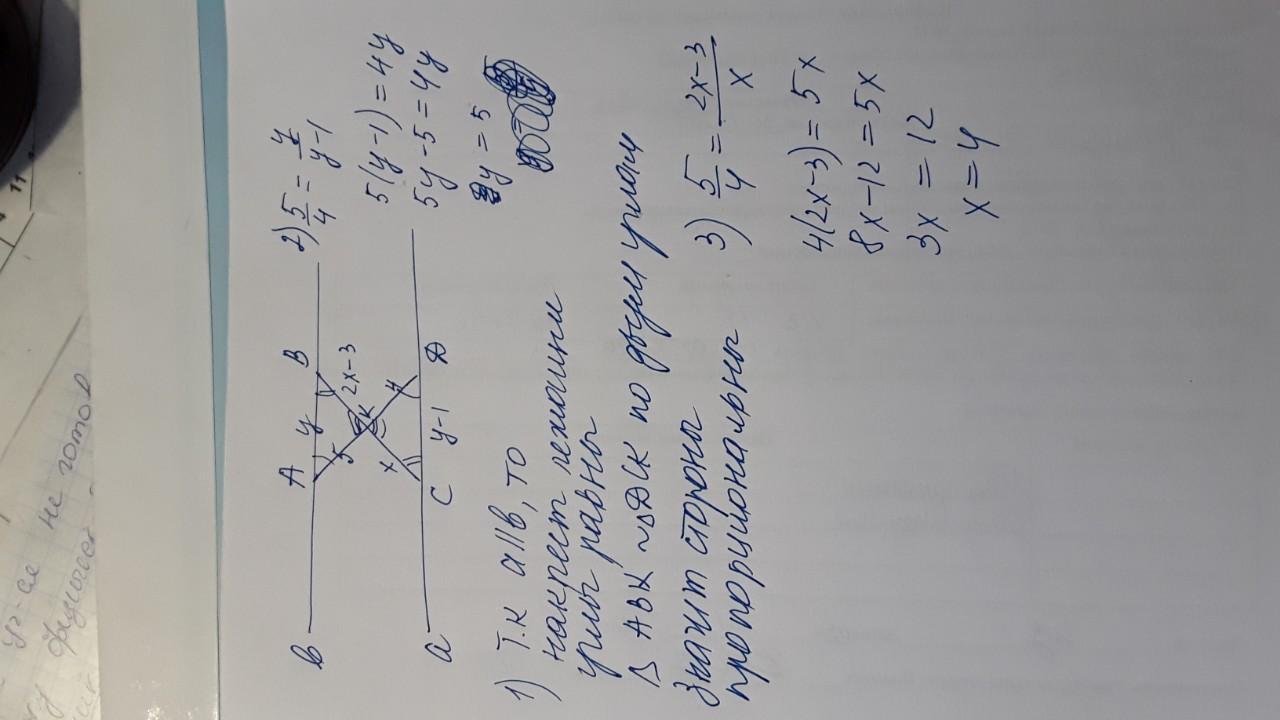 B A y B
5 2x-3
K
x 4
a C y-1 Д
1) Т.к a||b, то
накрест лежащие
углы равны
Δ ABK ~ΔДСК по двум углам
Значит стороны
пропорциональны
2) 5/4 = y/y-1
5(y-1) = 4y
5y-5 = 4y
y = 5
3) 5/4 = 2x-3/x
4(2x-3) = 5x
8x-12 = 5x
3x = 12
x = 4
уг-ая не готов
11